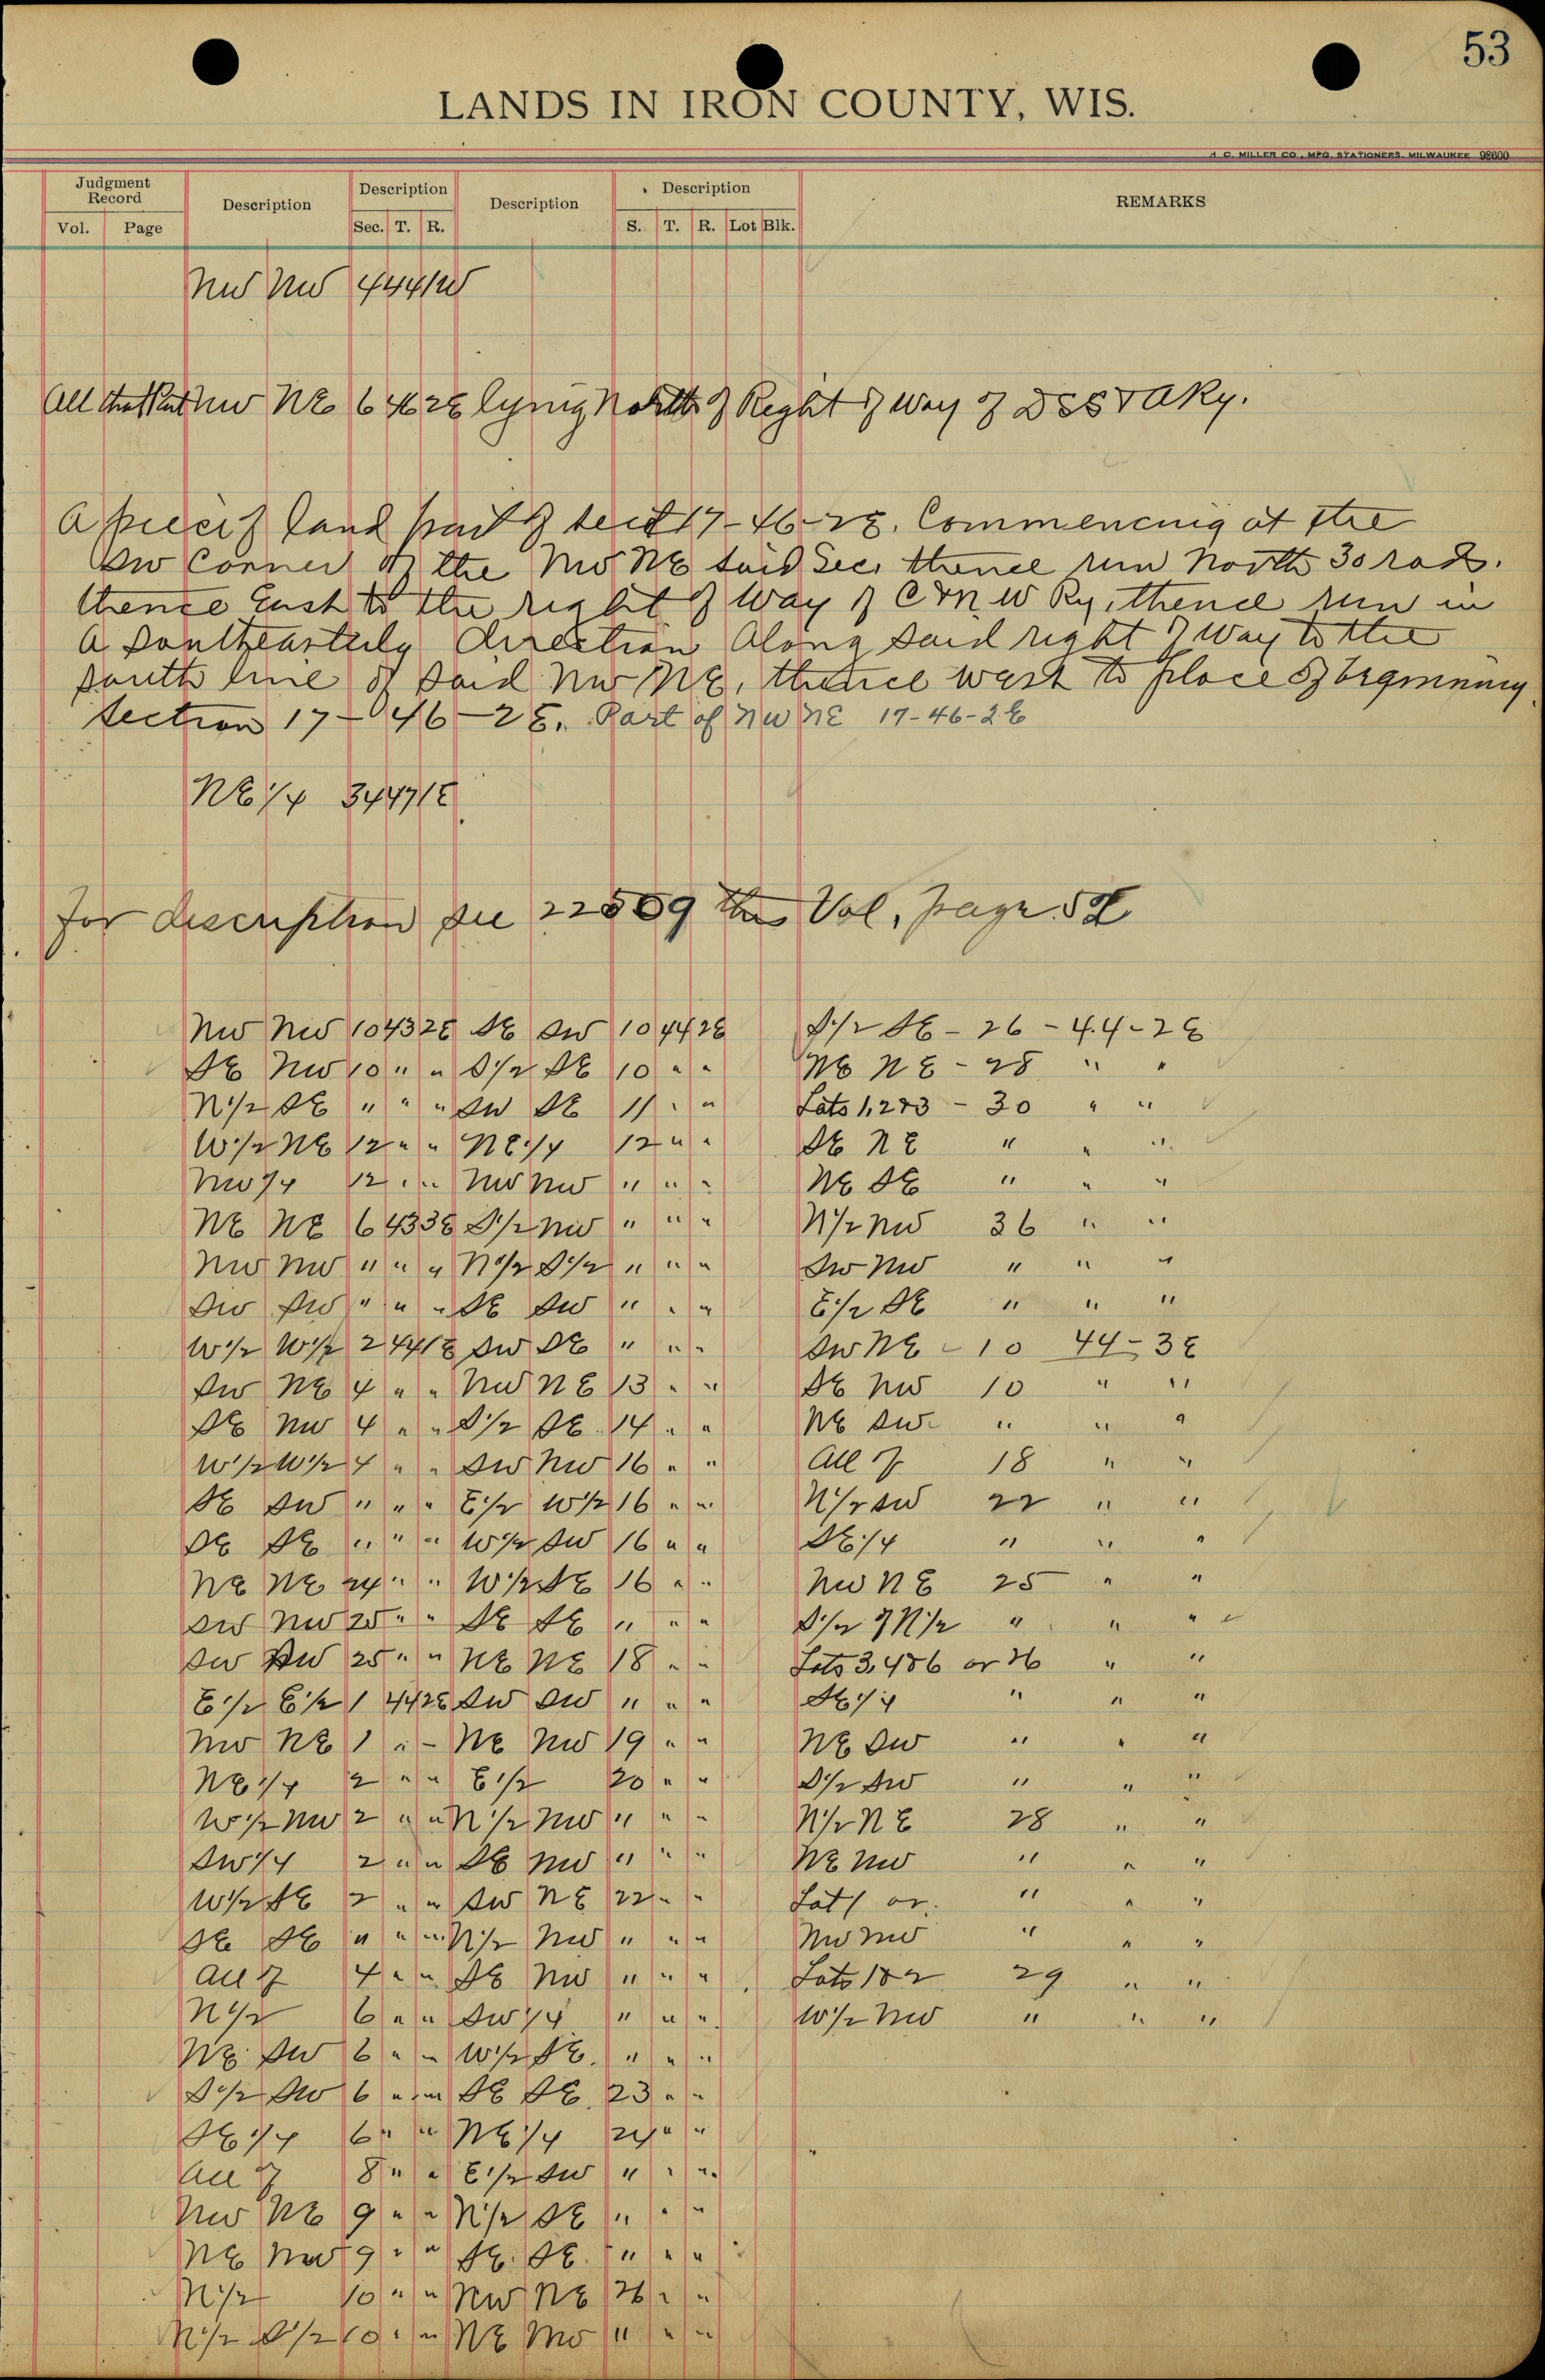 53
LANDS IN IRON COUNTY, WIS.
H. C. MILLER CO., MFG. STATIONERS, MILWAUKEE 98600
Judgment Record
Description
Description
Description
Description
REMARKS
Vol. Page Sec. T. R. S. T. R. Lot Blk.
NW NW 4 44 1W
All that Part NW NE 6 46 2E lying North of Right of Way of DSS & A Ry.
A piece of land part of sect 17-46-2E. Commencing at the
SW Corner of the NW NE said Sec. thence run North 30 rods.
thence East to the right of Way of C & N W Ry, thence run in
a southeasterly direction Along said right of Way to the
south line of said NW NE, thence west to place of beginning
Section 17-46-2E. Part of NW NE 17-46-2E
NE 1/4 3 44 1E
For description see 22509 this Vol, page 52
NW NW 10 43 2E SE SW 10 44 2E S 1/2 SE - 26 - 44 - 2E
SE NW 10 " " S 1/2 SE 10 " " NE NE - 28 " "
N 1/2 SE " " " SW SE 11 " " Lots 1, 2 & 3 - 30 " "
W 1/2 NE 12 " " NE 1/4 12 " " SE NE " " "
NW 1/4 12 " " NW NW " " " NE SE " " "
NE NE 6 43 3E S 1/2 NW " " " N 1/2 NW 36 " "
NW NW " " " N 1/2 S 1/2 " " " SW NW " " "
SW SW " " " SE SW " " " E 1/2 SE " " "
W 1/2 W 1/2 2 44 1E SW SE " " " SW NE - 10 44 - 3E
SW NE 4 " " NW NE 13 " " SE NW 10 " "
SE NW 4 " " S 1/2 SE 14 " " NE SW " " "
W 1/2 W 1/2 4 " " SW NW 16 " " All of 18 " "
SE SW " " " E 1/2 W 1/2 16 " " N 1/2 SW 22 " "
SE SE " " " W 1/2 SW 16 " " SE 1/4 " " "
NE NE 24 " " W 1/2 SE 16 " " NW NE 25 " "
SW NW 25 " " SE SE " " " S 1/2 of N 1/2 " " "
SW SW 25 " " NE NE 18 " " Lots 3, 4 & 6 or 26 " "
E 1/2 E 1/2 1 44 2E SW SW " " " SE 1/4 " " "
NW NE 1 " " NE NW 19 " " NE SW " " "
NE 1/4 2 " " E 1/2 20 " " S 1/2 SW " " "
W 1/2 NW 2 " " N 1/2 NW " " " N 1/2 NE 28 " "
SW 1/4 2 " " SE NW " " " NE NW " " "
W 1/2 SE 2 " " SW NE 22 " " Lot 1 or " " "
SE SE " " " N 1/2 NW " " " NW NW " " "
All of 4 " " SE NW " " " Lots 1 & 2 29 " "
N 1/2 6 " " SW 1/4 " " " W 1/2 NW " " "
NE SW 6 " " W 1/2 SE " " "
S 1/2 SW 6 " " SE SE 23 " "
SE 1/4 6 " " NE 1/4 24 " "
All of 8 " " E 1/2 SW " " "
NW NE 9 " " N 1/2 SE " " "
NE NW 9 " " SE SE " " "
N 1/2 10 " " NW NE 26 " "
N 1/2 S 1/2 10 " " NE NW " " "